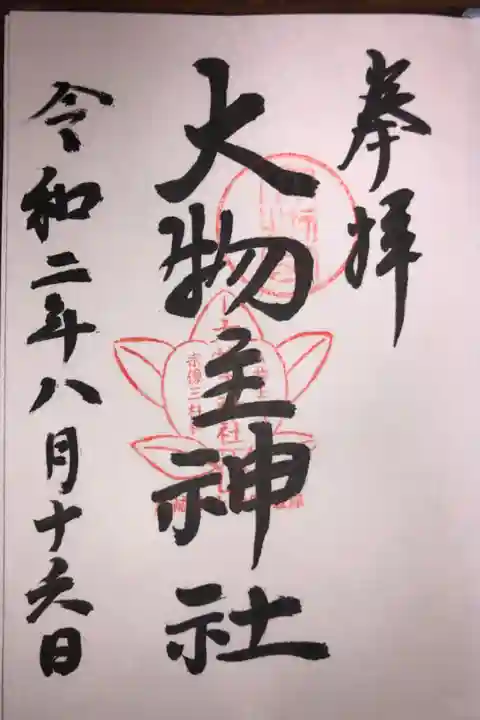 奉拝
大物主神社
令和二年八月十六日
宗像三